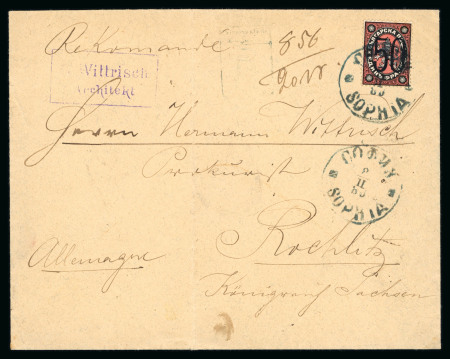 Rekomandé 856
Vittrisch
Architekt
50
СОФИЯ
SOPHIA
Herrn Hermann Wittrisch
Prokurist
СОФИЯ
SOPHIA
Rochlitz
Allemagne
Königreich Sachsen